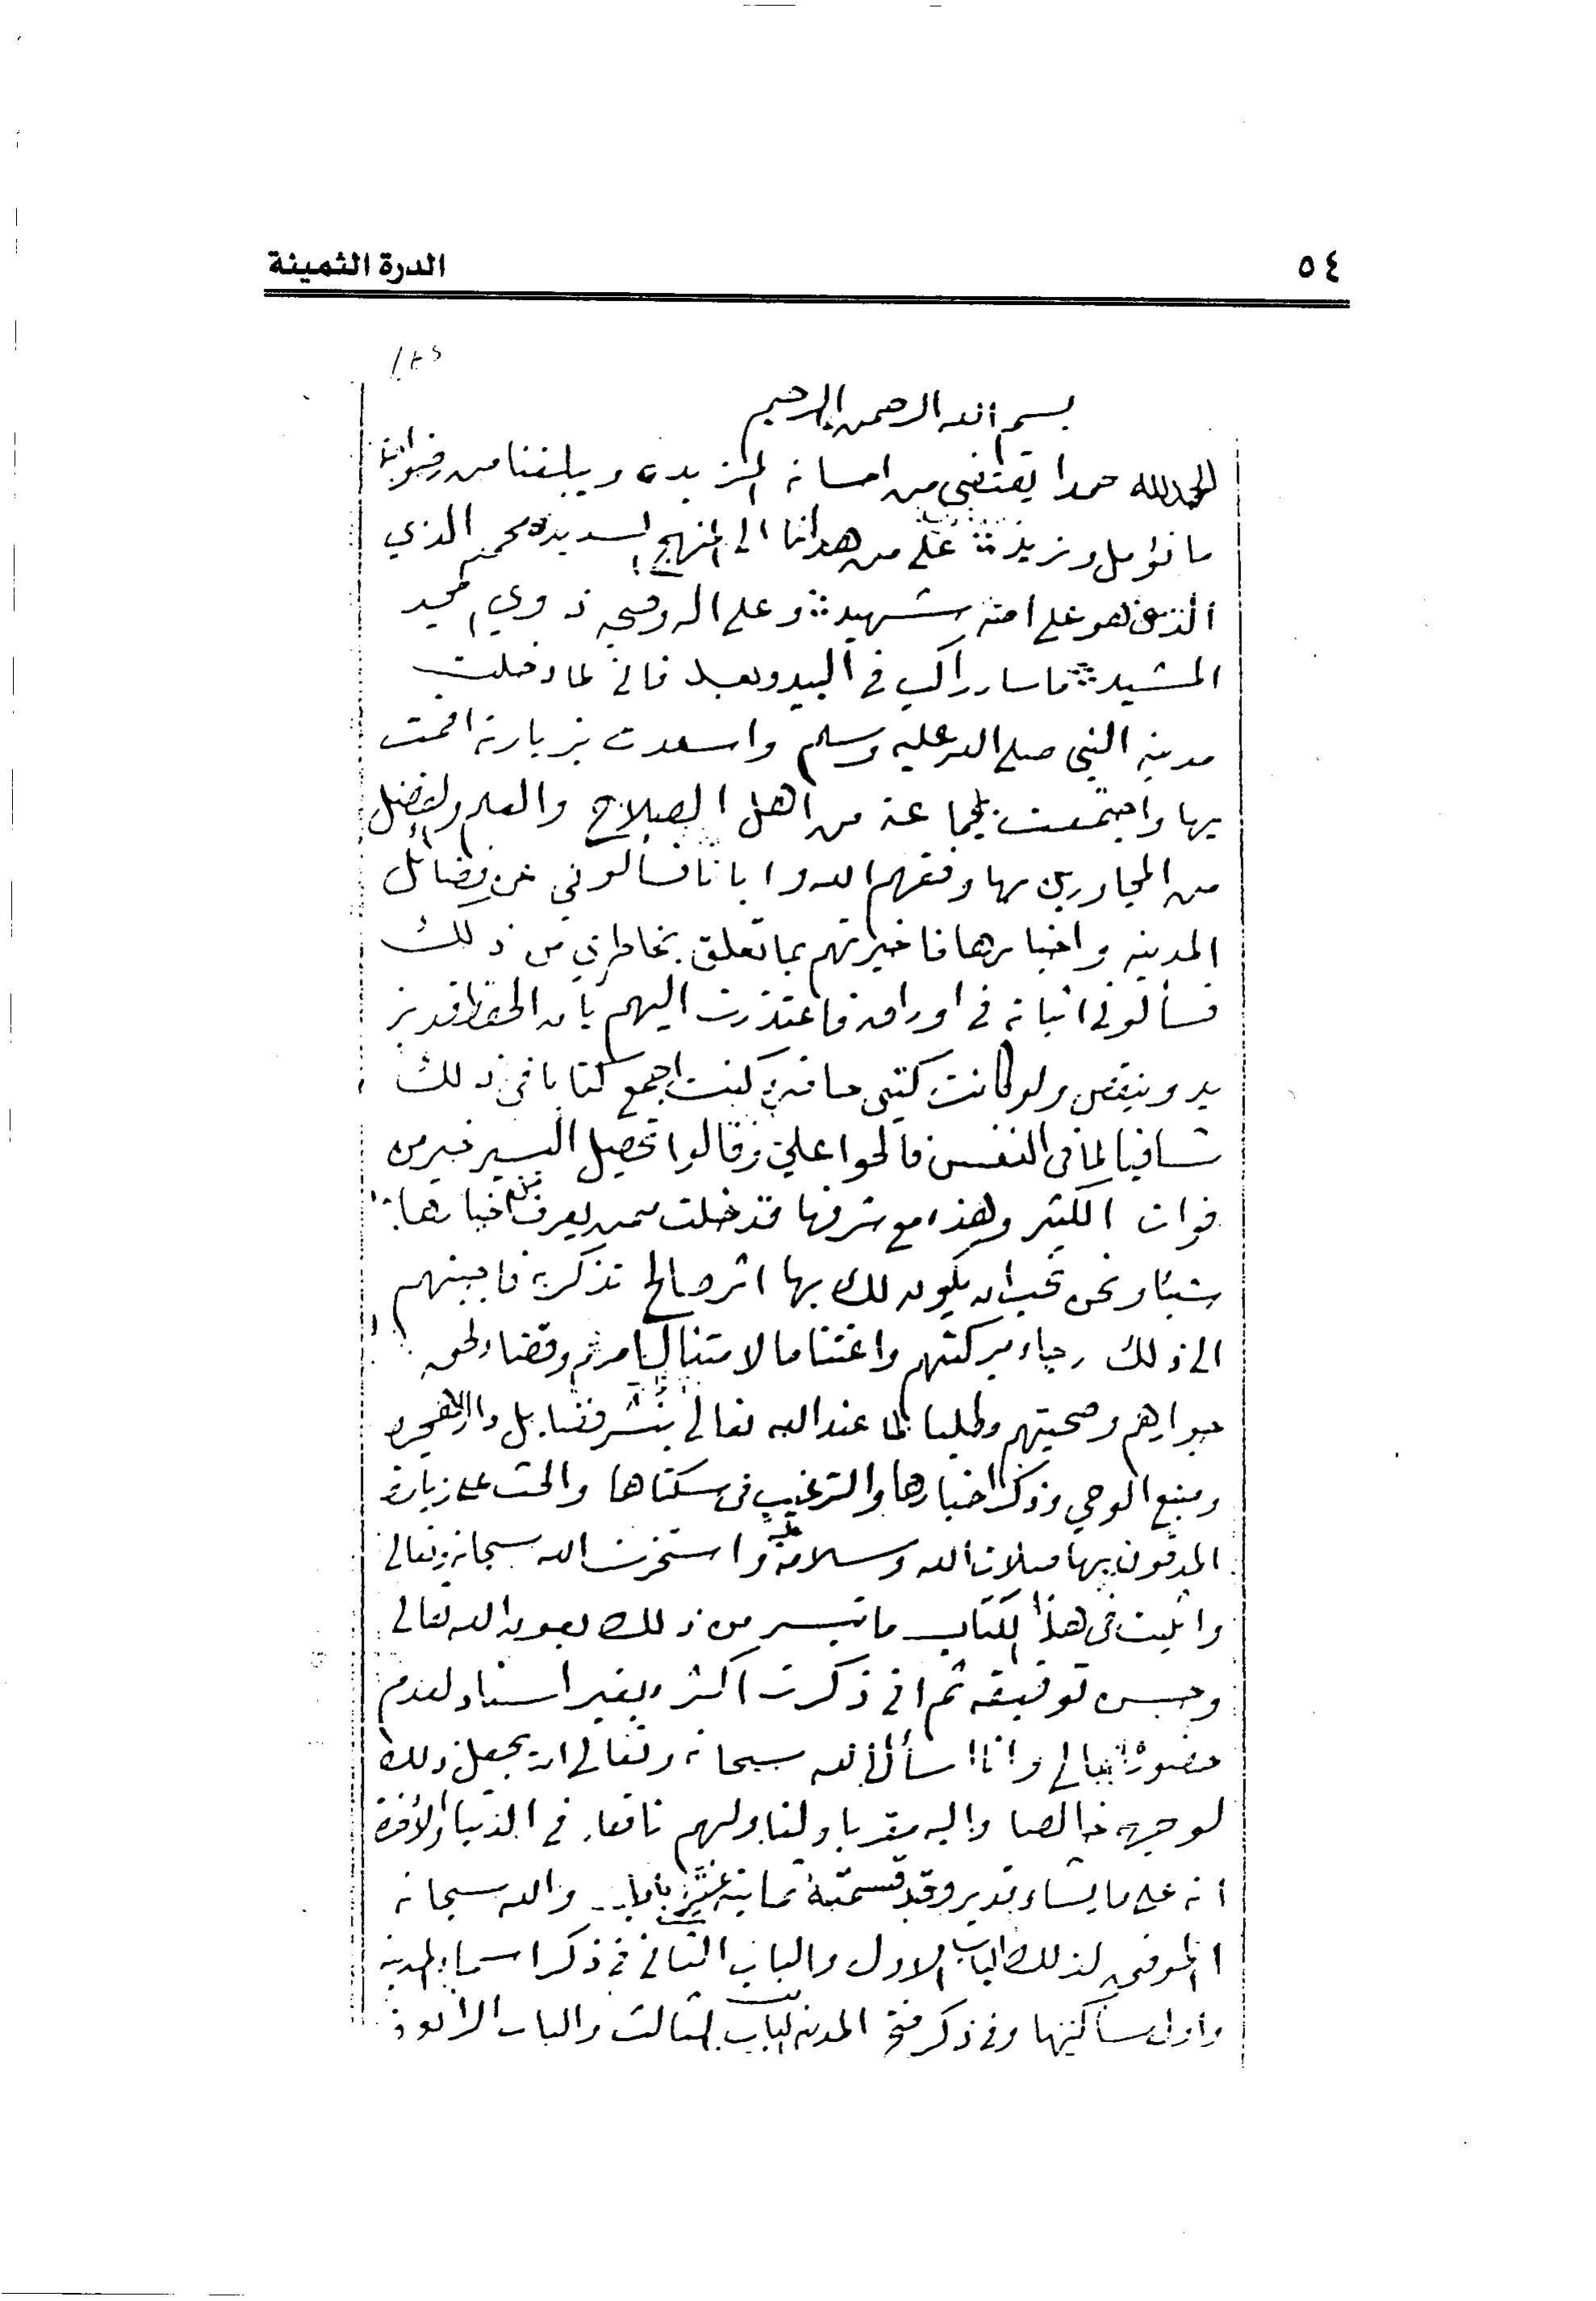 ٥٤
الدرة الثمينة
بسم الله الرحمن الرحيم
الحمد لله حمدا يقتضي من احسانه المزيد ويبلغنا من رضوانه
ما نؤمل ونريد على من هدانا الى المنهج السديد محمد الذي
الذي هو على امته شهيد وعلى اله وصحبه ذوي المجد
المشيد ما سار راكب في البيد وبعد فاني لما دخلت
مدينة النبي صلى الله عليه وسلم واسعدت بزيارته اقمت
بها واجتمعت بجماعة من اهل الصلاح والعلم والفضل
من المجاورين بها وفقهم الله وايانا فسألوني عن فضائل
المدينة واخبارها فاخبرتهم بما تعلق بخاطري من ذلك
فسألوني اثباته في اوراق فاعتذرت اليهم بان الحفظ قد يز
يد وينقص ولو كانت كتبي حاضرة كنت اجمع كتابا في ذلك
شافيا لما في النفس فالحوا علي وقالوا تحصيل اليسير خير من
فوات الكثير وهذه مع شرفها قد خلت ممن يعرف من اخبارها
شيئا ونحن نحب ان يكون لك بها اثر صالح تذكر به فاجبتهم
الى ذلك رجاء بركتهم واغتناما لامتثال امرهم وقضاء لحق
جوارهم وصحبتهم وطلبا لما عند الله تعالى بنشر فضايل دار الهجرة
ومنبع الوحي وذكر اخبارها والترغيب في سكناها والحث على زيارة
المدفون بها صلات الله وسلامه عليه واستخرت الله سبحانه وتعالى
واثبت في هذا الكتاب ما تيسر من ذلك بعون الله تعالى
وحسن توفيقه ثم اني ذكرت اكثره بغير اسناد لعدم
حضور اصولي وانا اسأل الله سبحانه وتعالى ان يجعل ذلك
لوجهه خالصا واليه مقربا ولنا ولهم نافعا في الدنيا والاخرة
انه على ما يشاء قدير وقد قسمته ثمانية عشر بابا والله سبحانه
الموفق لذلك الباب الاول والباب الثاني في ذكر اسماء المدينة
واول ساكنيها وفي ذكر فتح المدينة الباب الثالث والباب الرابع